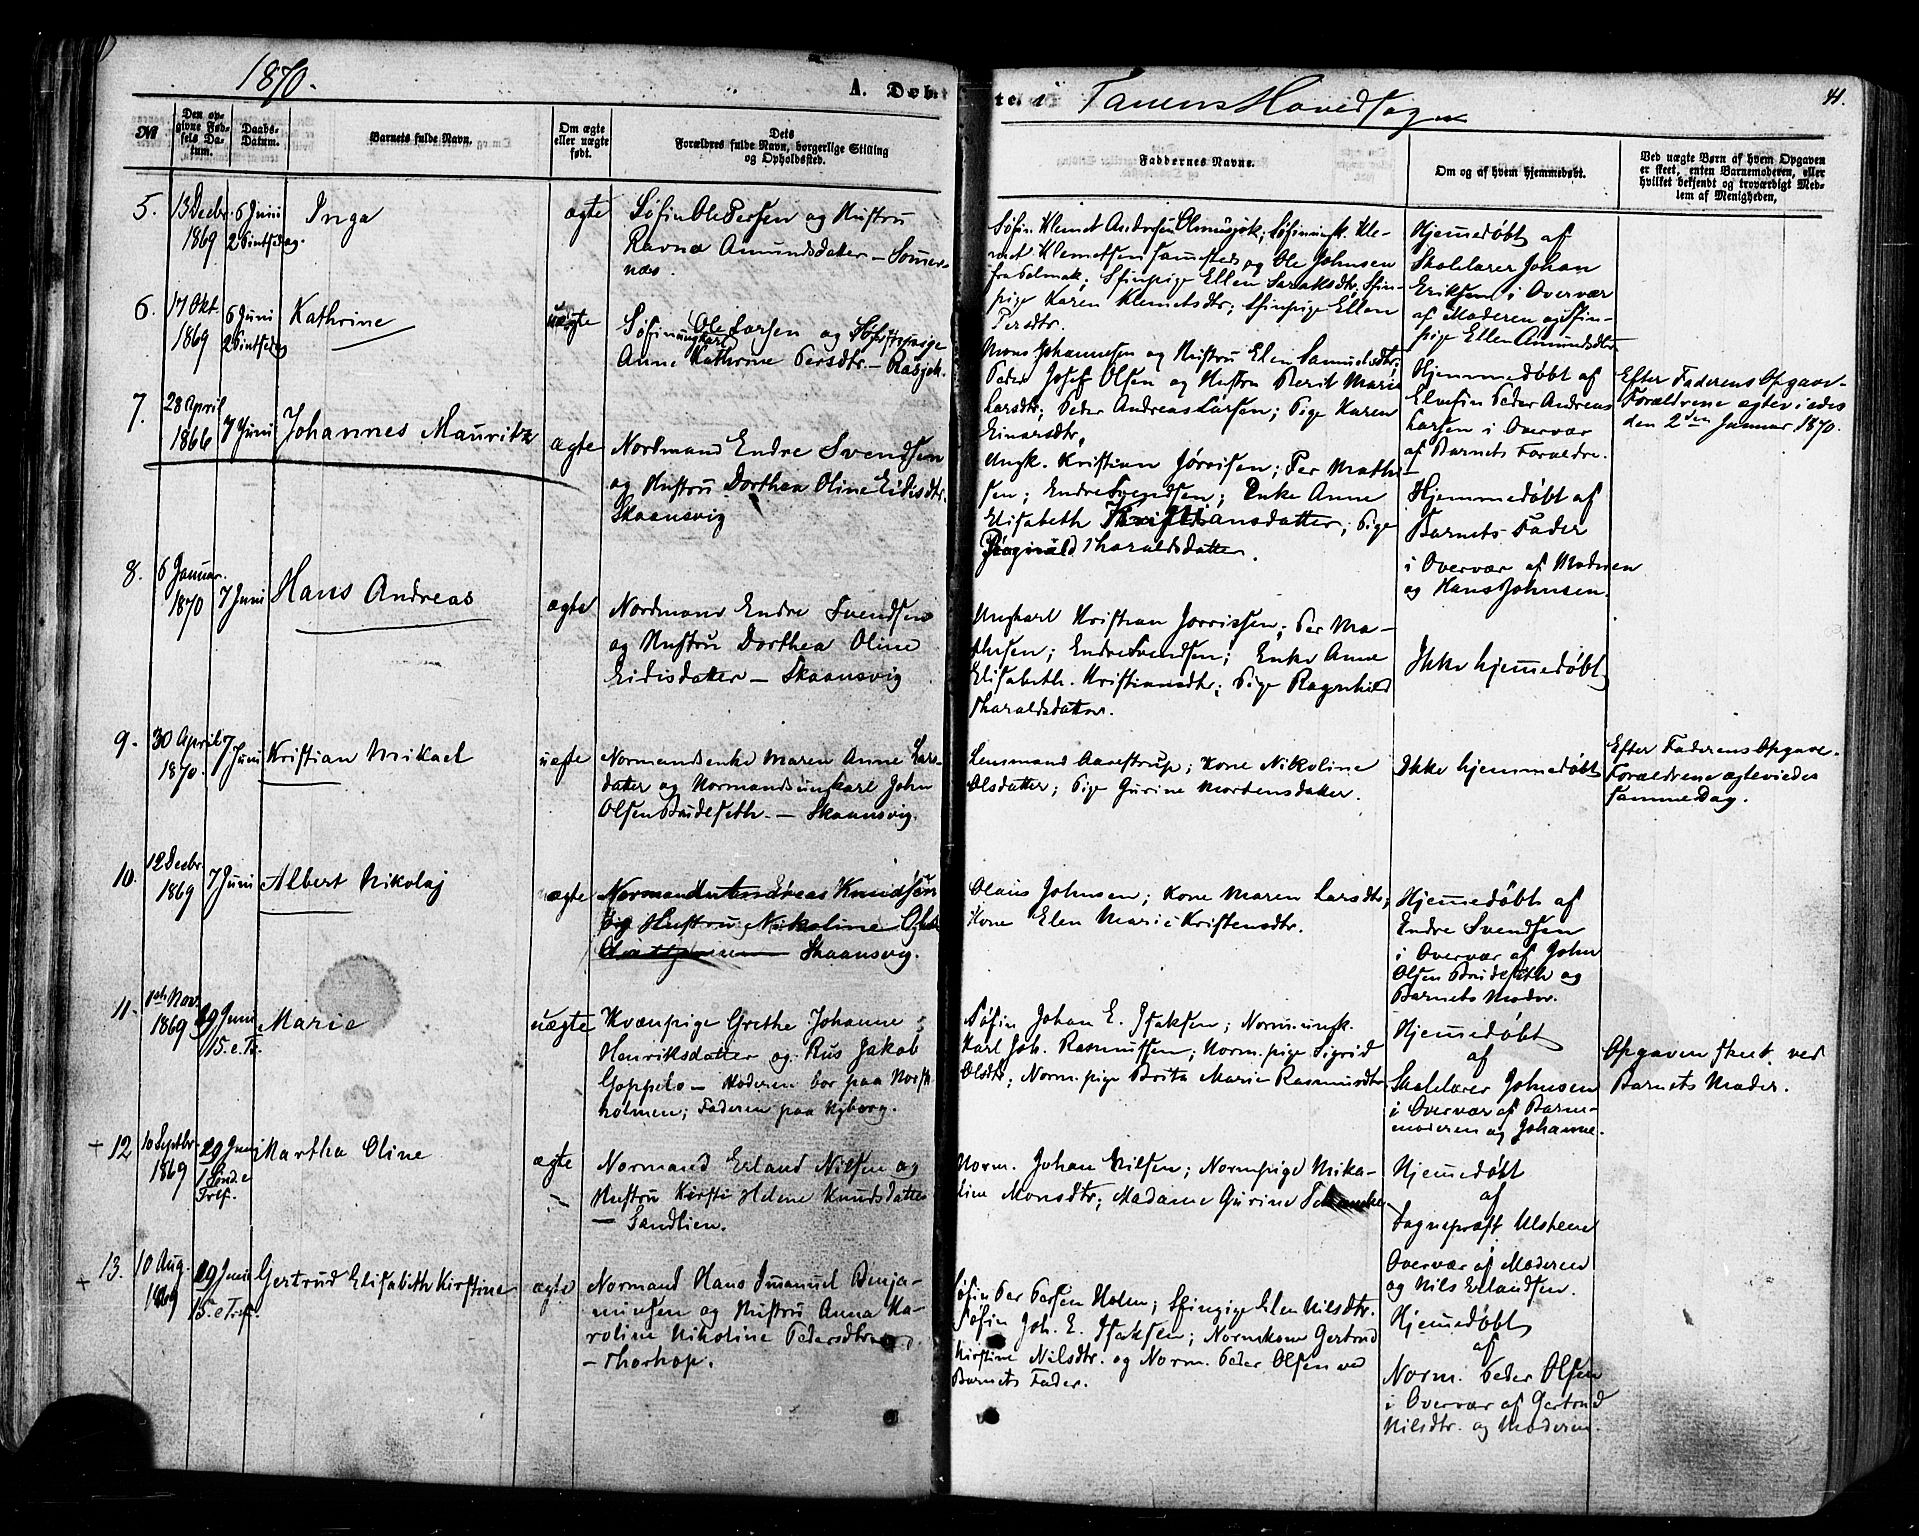 1870.
A. Døbte i Tanens Hovedsogn
41.
№
Den opgivne Fødsels Datum.
Daabs-Datum.
Barnets fulde Navn.
Om ægte eller uægte født.
Dets Forældres fulde Navn, borgerlige Stilling og Opholdssted.
Faddernes Navne.
Om og af hvem hjemmedøbt.
Ved uægte Børn af hvem Opgaven er skeet, enten Barnemoderen, eller hvilket bekjendt og troværdigt Medlem af Menigheden.
5.
13 Decbr.
1869
6 Juni
2 Pintsedag.
Inga
ægte
Søfin Ole Persen og Hustru
Ravna Amundsdatter – Somer-
næs.
Søfin Klemet Andersen
met Klemetsen samesteds og Ole Johnsen
fra Polmak; Sfinpige Ellen Saraksdtr. Sfin-
pige Karen Klemetsdtr; Sfinpige Ellen
Persdtr.
Hjemedøbt af
Skolelærer Johan
Eriksen i Overvær
af Moderen og Sfin-
pige Ellen Amundsdtr
6.
17 Okt
1869
6 Juni
2 Pintsedag
Kathrine
uægte
Søfinungkarl Ole Larsen og Søfinpige
Anne Kathrine Persdtr. – Rasjok.
Mons Johannesen og Hustru Elen Samuelsdtr;
Peder Josef Olsen og Hustru Berit Marie
Larsdtr; Peder Andreas Larsen; Pige Karen
Einarsdtr.
Hjemmedøbt af
Elvefin Peder Andreas
Larsen i Overvær
af Barnets Forældre.
Efter Faderens Opgave.
Forældrene ægteviedes
den 2den Januar 1870.
7.
28 April
1866
7 Juni
Johannes Mauritz
ægte
Nordmand Endre Svendsen
og Hustru Dorthea Oline Eidisdtr.
Skaansvig
Ungk. Kristian Jørrisen; Per Mathi-
sen; Endre Svendsen; Enke Anne
Elisabeth Kristiansdatter; Pige
Ragnild Tharaldsdatter.
Hjemmedøbt af
Barnets Fader
i Overvær af Moderen
og Hans Johnsen.
8.
6 Januar.
1870
7 Juni
Hans Andreas
ægte
Nordmand Endre Svendsen
og Hustru Dorthea Oline
Eidisdatter – Skaansvig
Ungkarl Kristian Jørrissen; Per Ma-
thisen; Endre Svendsen; Enke Anne
Elisabeth Kristiansdtr; Pige Ragnhild
Tharaldsdatter.
Ikke hjemedøbt
9.
30 April
1870.
7 Juni
Kristian Mikael
uægte
Normandsenke Maren Anne Lars-
datter og Normandsungkarl John
Olsen Brudeseth. – Skaansvig.
Lensmand Aarestrup; Kone Nikoline
Olsdatter; Pige Gurine Mortensdatter.
Ikke hjemmedøbt
Efter Faderens Opgave.
Forældrene ægteviedes
samme Dag.
10.
12 Decbr.
1869
7 Juni
Albert Nikolaj
ægte
Normand Andreas Knudsen
og Hustru Nikoline
Skaansvig.
Olaus Johnsen; Kone Maren Larsdtr;
Kone Elen Marie Kristensdtr.
Hjemedøbt af
Endre Svendsen
i Overvær af John
Olsen Brudeseth og
Barnets Moder.
11.
Nov.
1869
29 Juni
15. e. Tr.
Marie
uægte
Kvænpige Grethe Johanne
Henriksdatter og Rus Jakob
– Moderen bor paa Norsk-
holmen; Faderen paa Nyborg.
Søfin Johan E. Isaksen; Norm. ungk.
Karl Joh. Rasmussen; Norm. pige Sigrid
Olsdtr; Norm. pige Brita Marie Rasmusdtr
Hjemedøbt
af
Skolelærer Johnsen
i Overvær af Barne-
moderen og Johanne.
Opgaven skeet ved
Barnets Moder.
+ 12
10 Septbr.
1869
29 Juni
Martha Oline
ægte
Normand Erland Nilsen og
Hustru Kirsti Helene Knudsdatter
– Sandlien.
Norm. Johan Nilsen; Normpige Mika-
line Monsdtr; Madame Gurine
Hjemedøbt
af
Sognepræst Ulstene
Overvær af Moderen
og Nils Erlandsen.
+ 13.
10 Aug.
1869
29 Juni
15. e Tref.
Gertrud Elisabeth Kirstine
ægte
Normand Hans Imanuel Benja-
minsen og Hustru Anna Ka-
roline Nikoline Pedersdtr
– Thorhop.
Søfin Per Persen Holm; Sfinpige Elen Nilsdtr.
Søfin Joh. E. Isaksen; Normkone Gertrud
Kirstine Nilsdtr. og Norm. Peder Olsen ved
Barnets Fader.
Hjemedøbt
af
Norm. Peder Olsen
i Overvær af Gertrud
Nilsdtr. og Moderen.